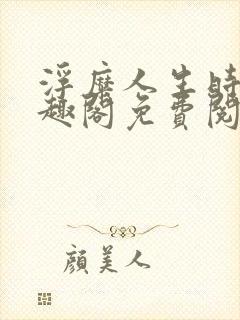 浮靡人生時
趣閣免費閱
顏美人